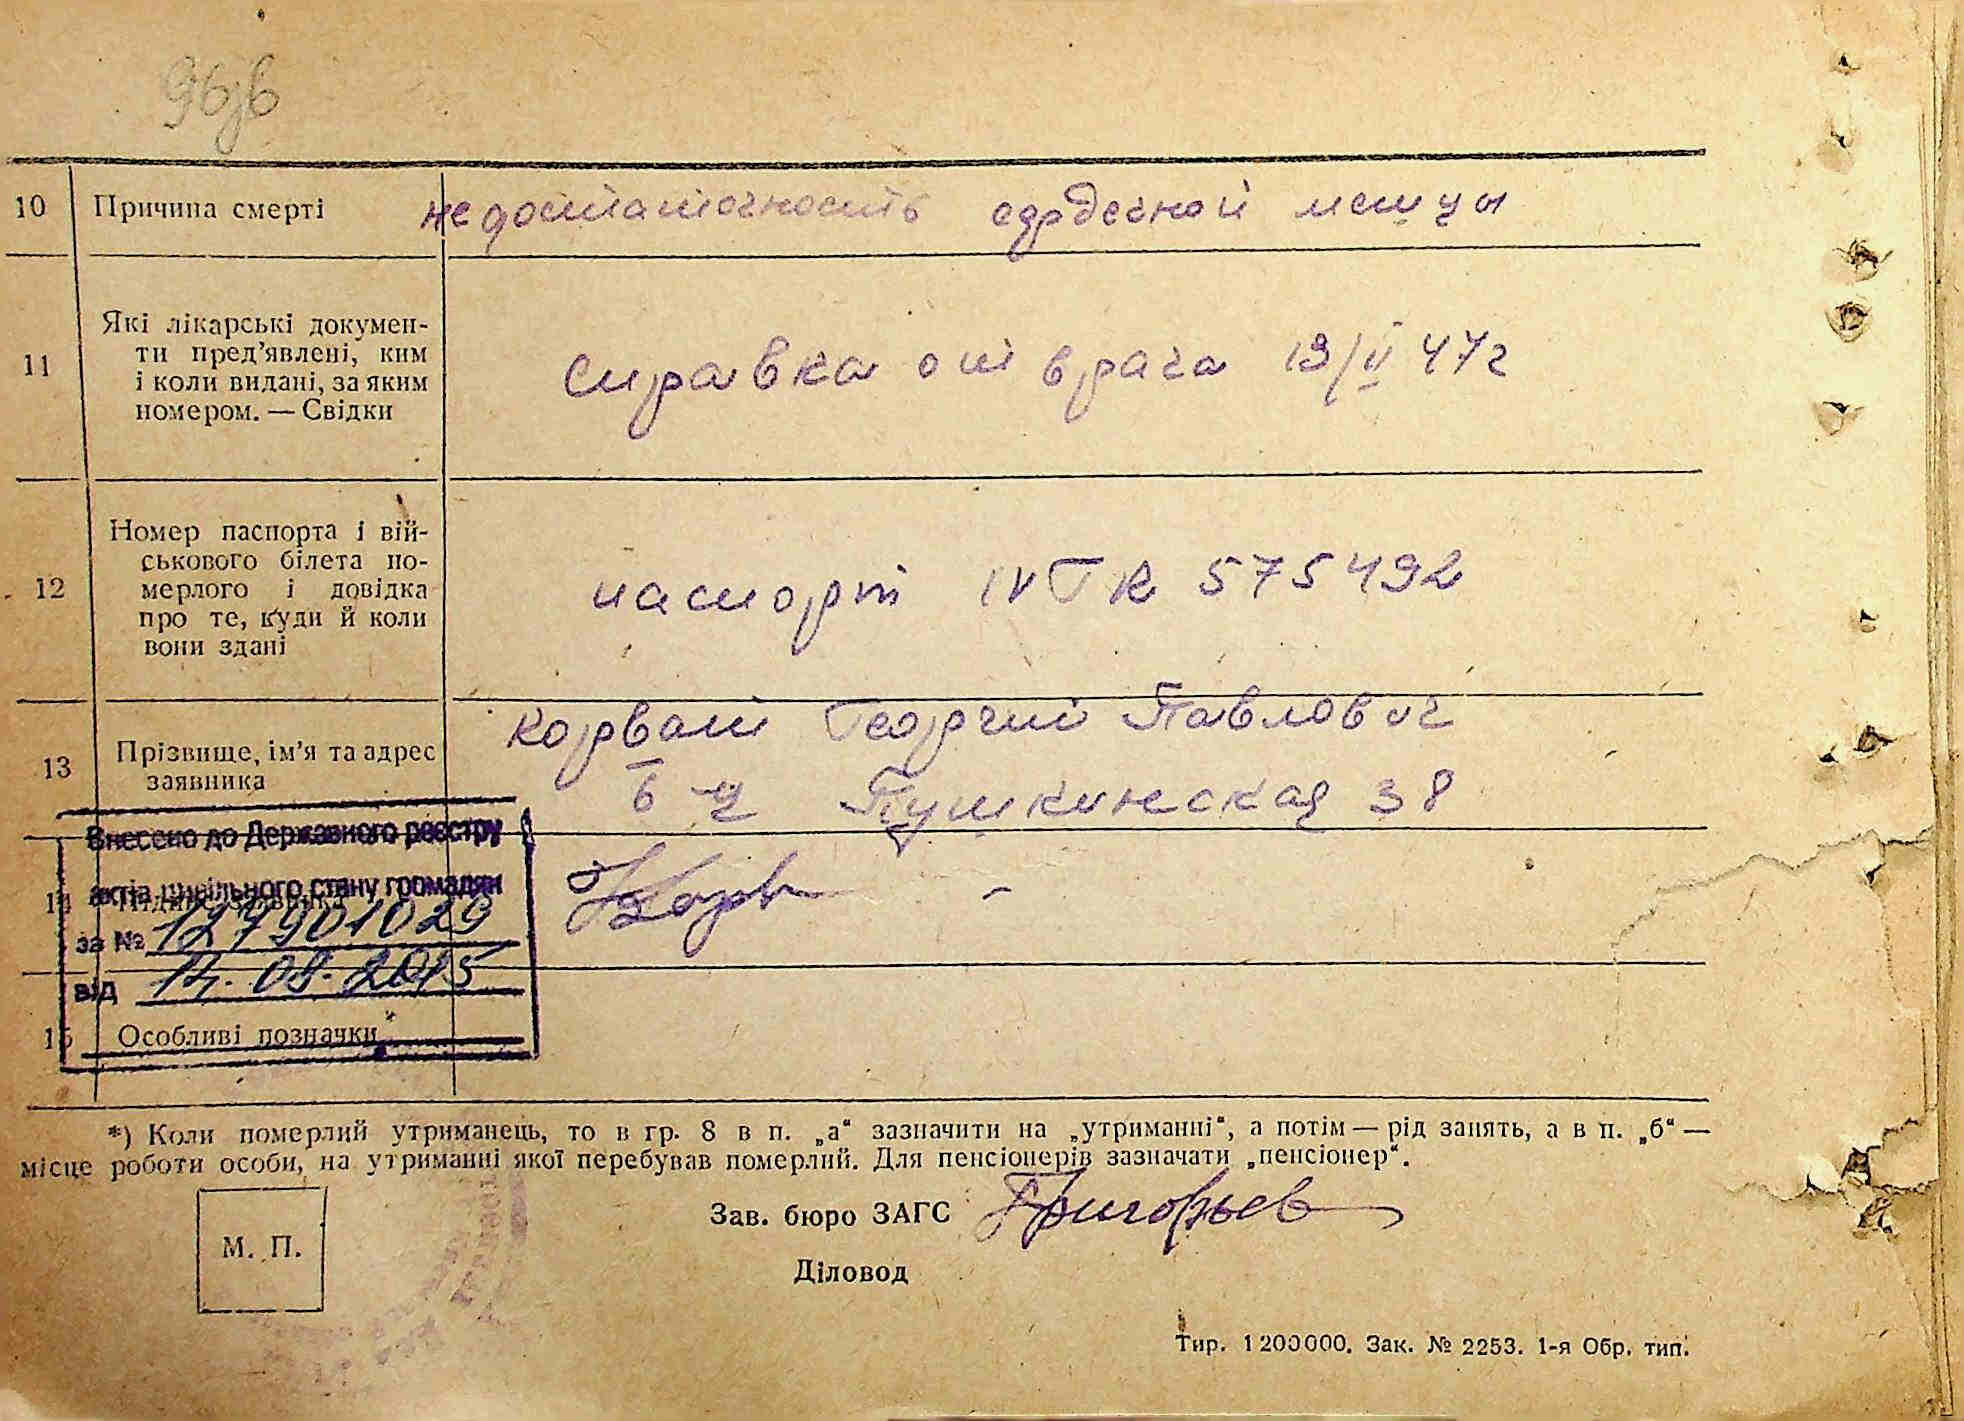 10 Причина смерті недостаточность сердечной мешцы
Які лікарські докумен-
ти пред’явлені, ким
11 і коли видані, за яким
номером. — Свідки
справка от врача 19/II 47г
Номер паспорта і вій-
ськового білета по-
12 мерлого і довідка
про те, куди й коли
вони здані
паспорт IV ТК 575492
13 Прізвище, ім’я та адрес
заявника
Корват Георгий Павлович
Б-Д Пушкинская 38
Внесено до Державного реєстру
актів цивільного стану громадян
14 Підпис заявника
за № 127901029
від 14.08.2015
15 Особливі позначки
*) Коли померлий утриманець, то в гр. 8 в п. „а“ зазначити на „утриманні“, а потім — рід занять, а в п. „б“ —
місце роботи особи, на утриманні якої перебував померлий. Для пенсіонерів зазначати „пенсіонер“.
Зав. бюро ЗАГС Григорьев
М. П.
Діловод
Тир. 1200000. Зак. № 2253. 1-я Обр. тип.